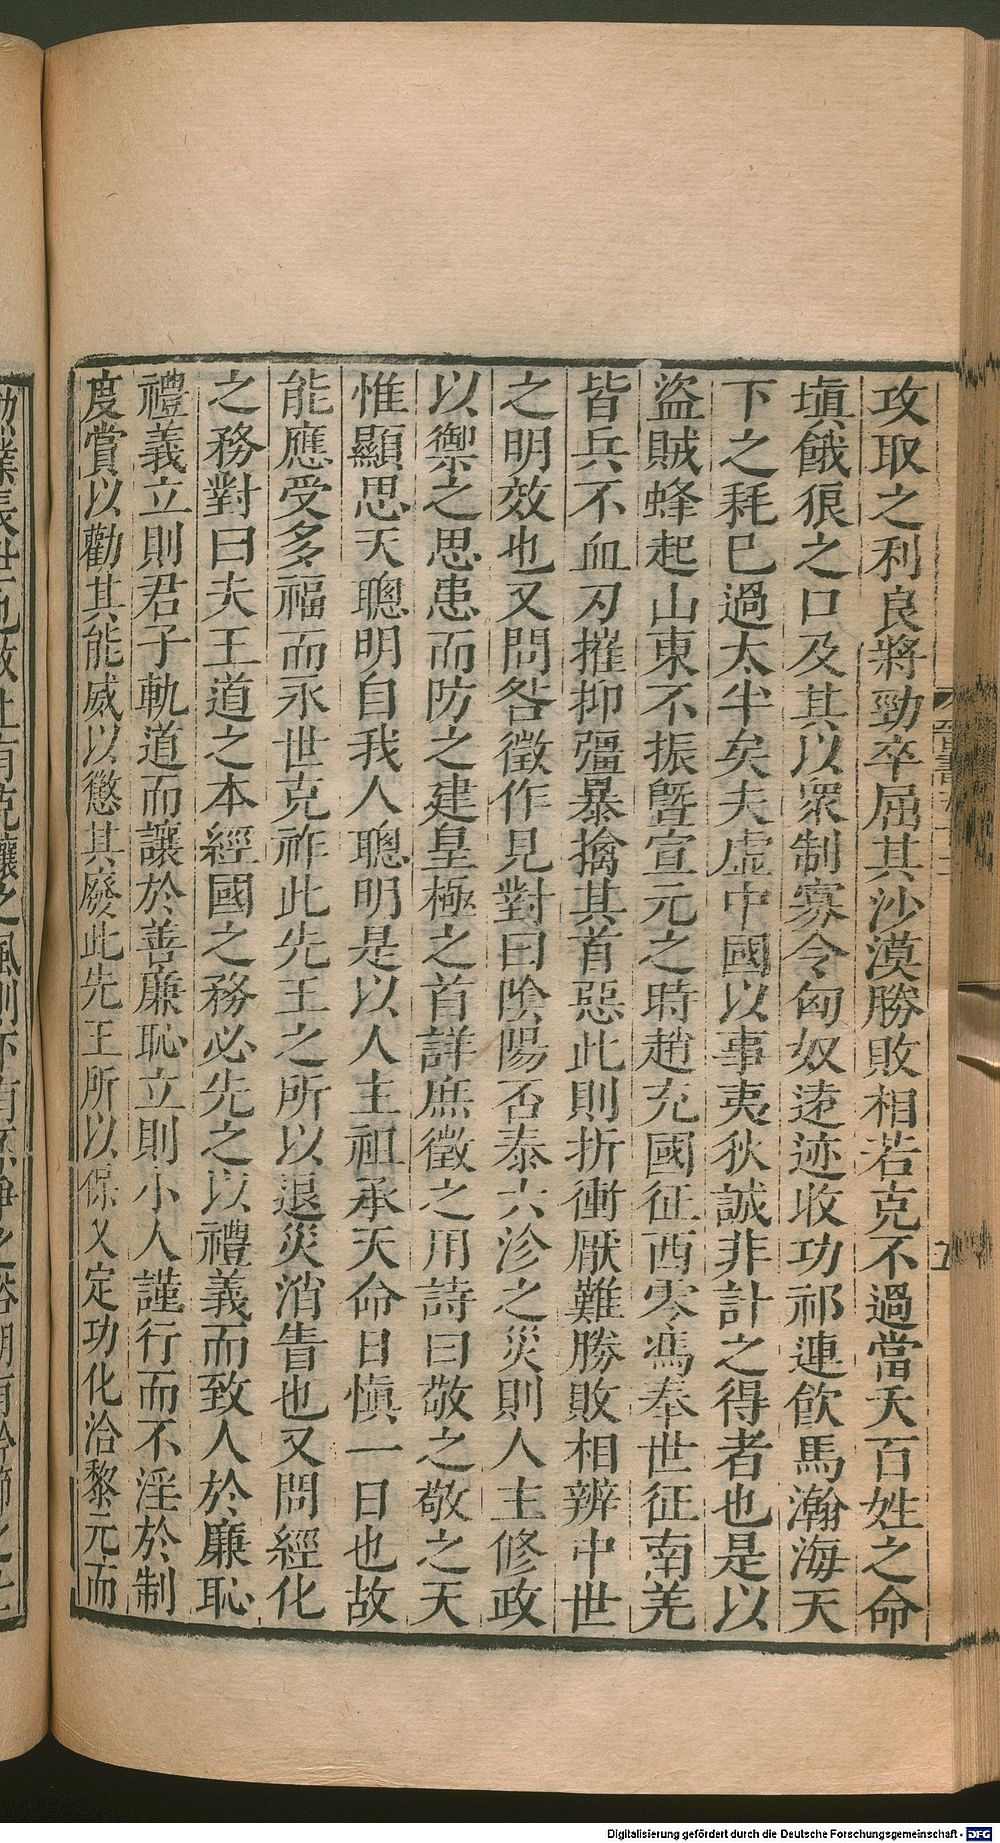 攻取之利良將勁卒屈其沙漠勝敗相若克不過當夭百姓之命
塡餓狼之口及其以衆制寡令匈奴遠迹收功祁連飮馬瀚海天
下之耗已過太半矣夫虛中國以事夷狄誠非計之得者也是以
盜賊蜂起山東不振曁宣元之時趙充國征西零馮奉世征南羌
皆兵不血刃摧抑彊暴擒其首惡此則折衝厭難勝敗相辨中世
之明效也又問咎徵作見對曰陰陽否泰六沴之災則人主修政
以禦之思患而防之建皇極之首詳庶徵之用詩曰敬之敬之天
惟顯思天聰明自我人聰明是以人主祖承天命日愼一日也故
能應受多福而永世克祚此先王之所以退災消眚也又問經化
之務對曰夫王道之本經國之務必先之以禮義而致人於廉恥
禮義立則君子軌道而讓於善廉恥立則小人謹行而不淫於制
度賞以勸其能威以懲其廢此先王所以保乂定功化洽黎元而
晉書
五
Digitalisierung gefördert durch die Deutsche Forschungsgemeinschaft - DFG